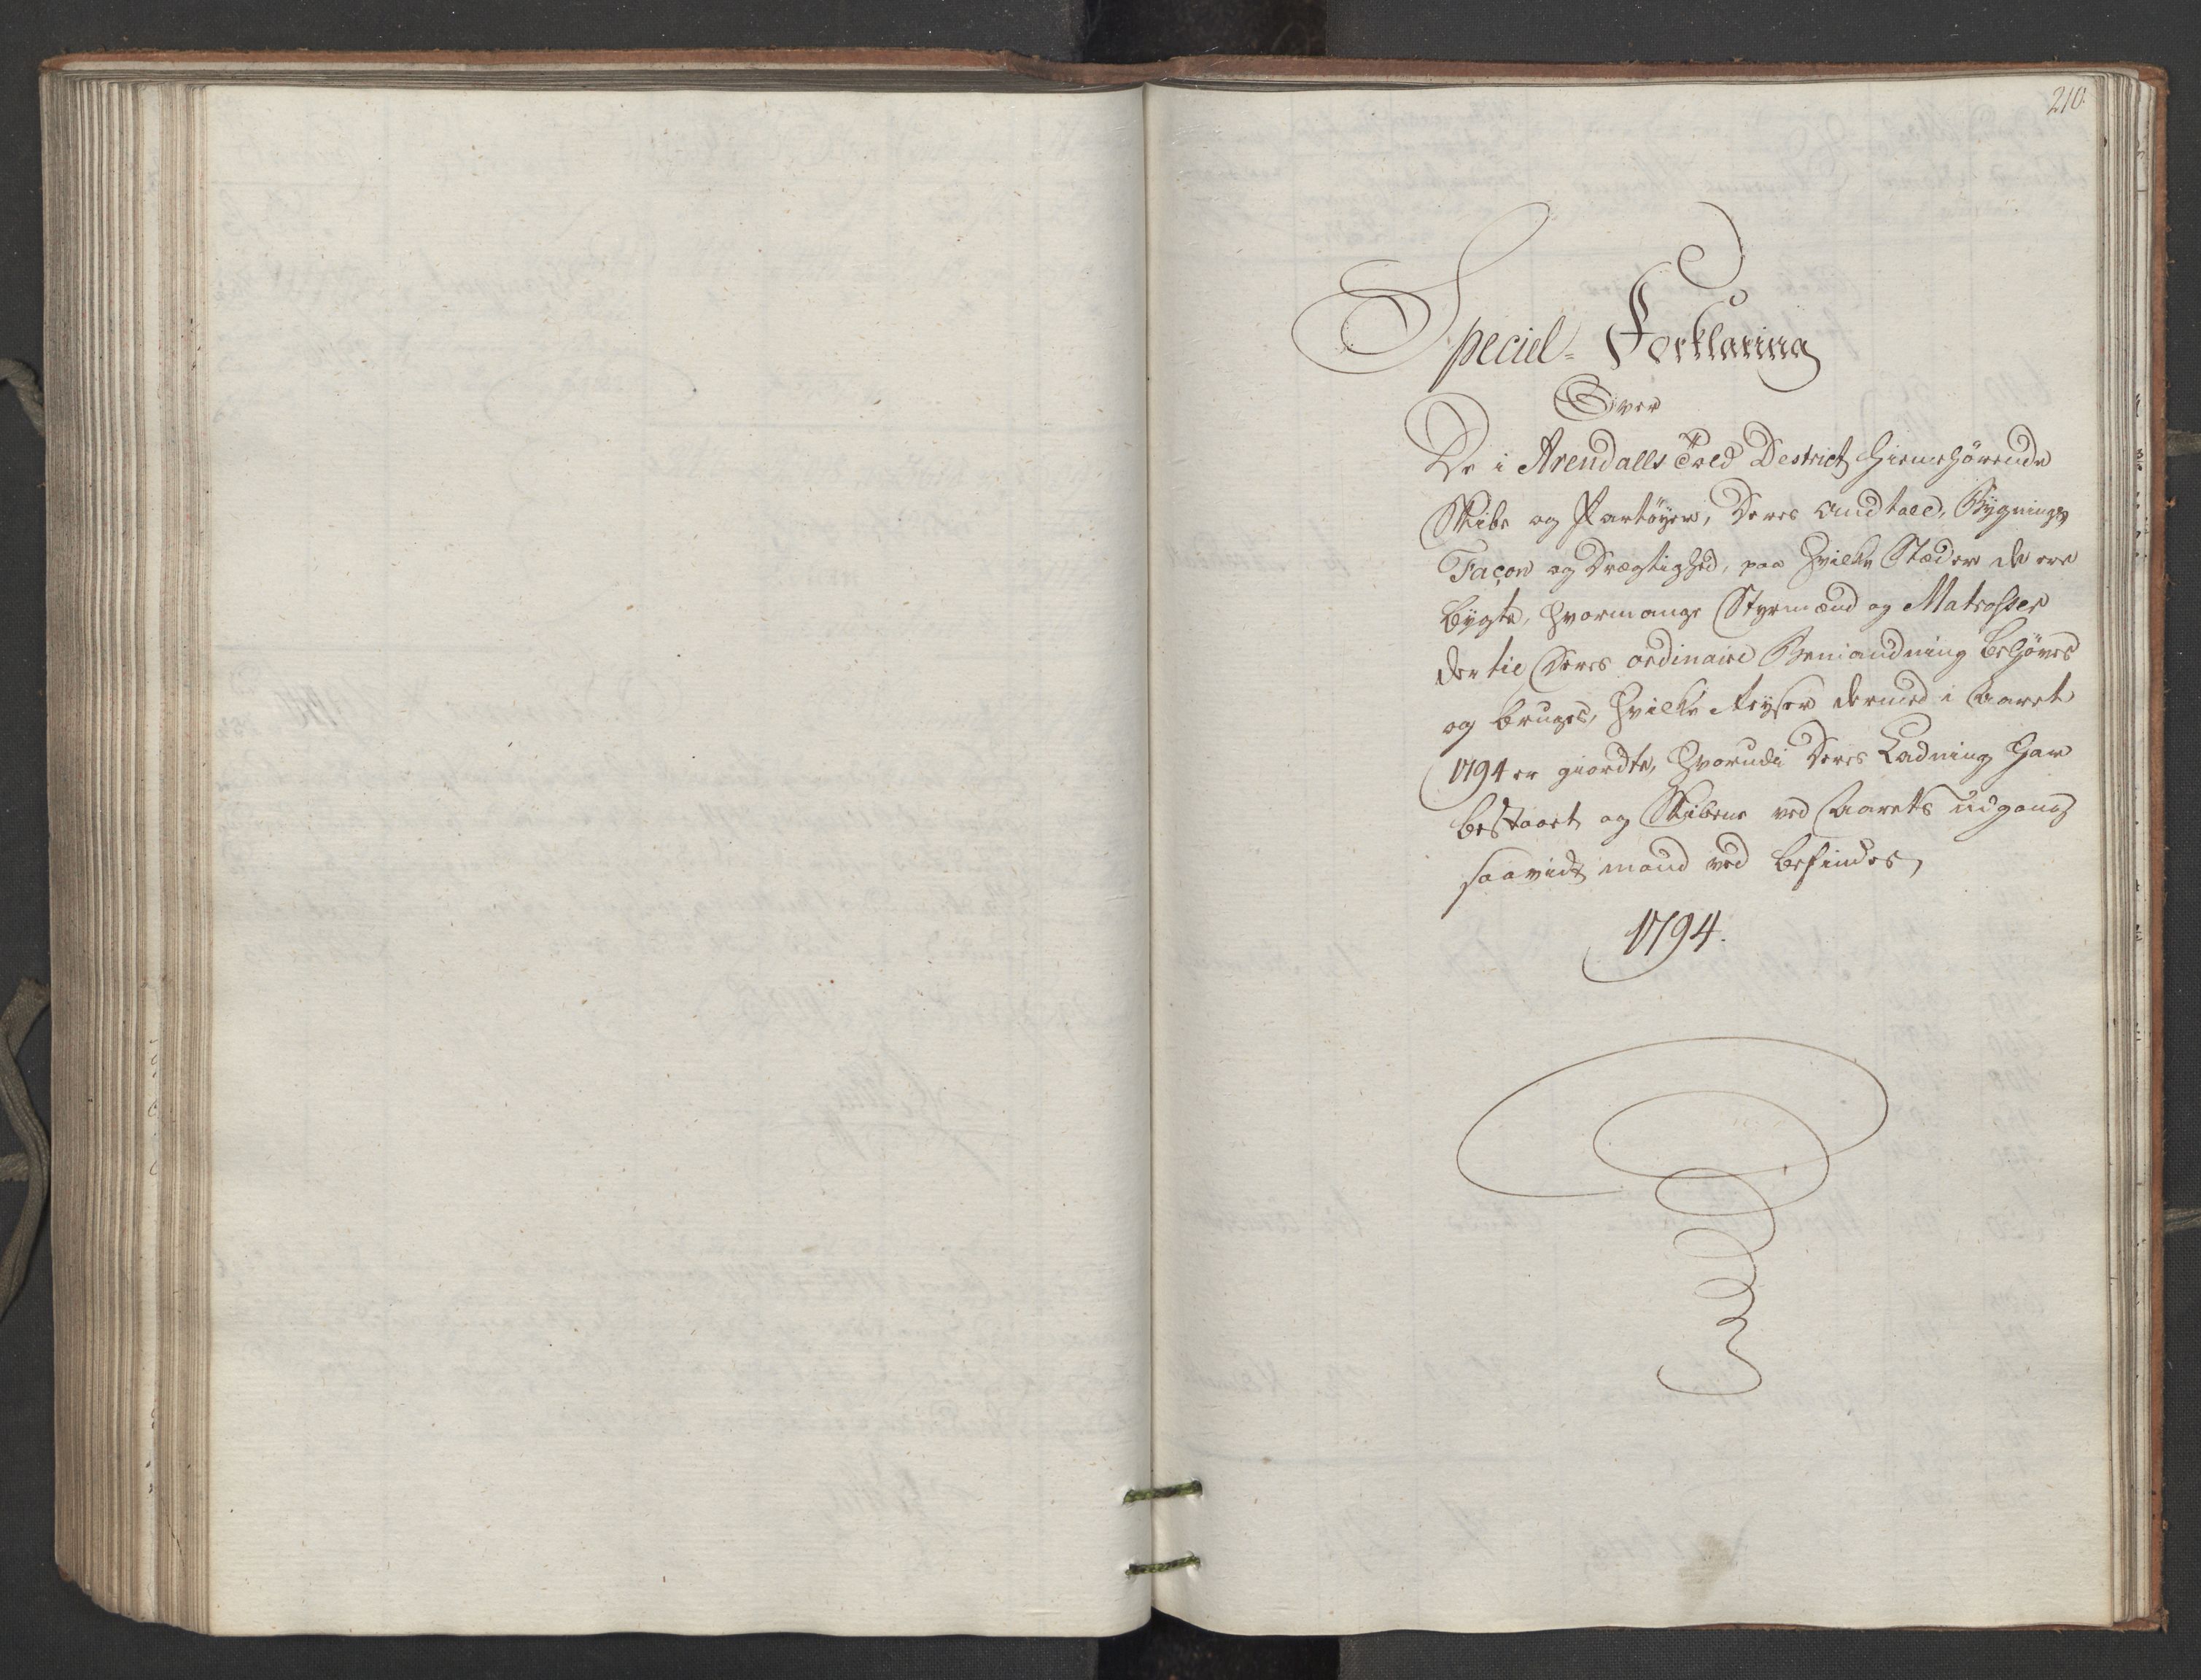 210.
Speciel- Forklaring
Over
De i Arendalls Told District hiemehørende
Skibe og Fartøyer, Deres Andtall, Bygnings
Façon og Drægtighed, paa hvilke Stæder de ere
bygte, hvormange Styrmænd og Matrosser
der til Deres ordinaire Bemandning behøves
og bruges, hvilke Reyser dermed i Aaret
1794 er giordte, hvorudi Deres Ladning har
bestaaet og Skibene ved Aarets udgang
saavidt mand ved befindes,
1794.